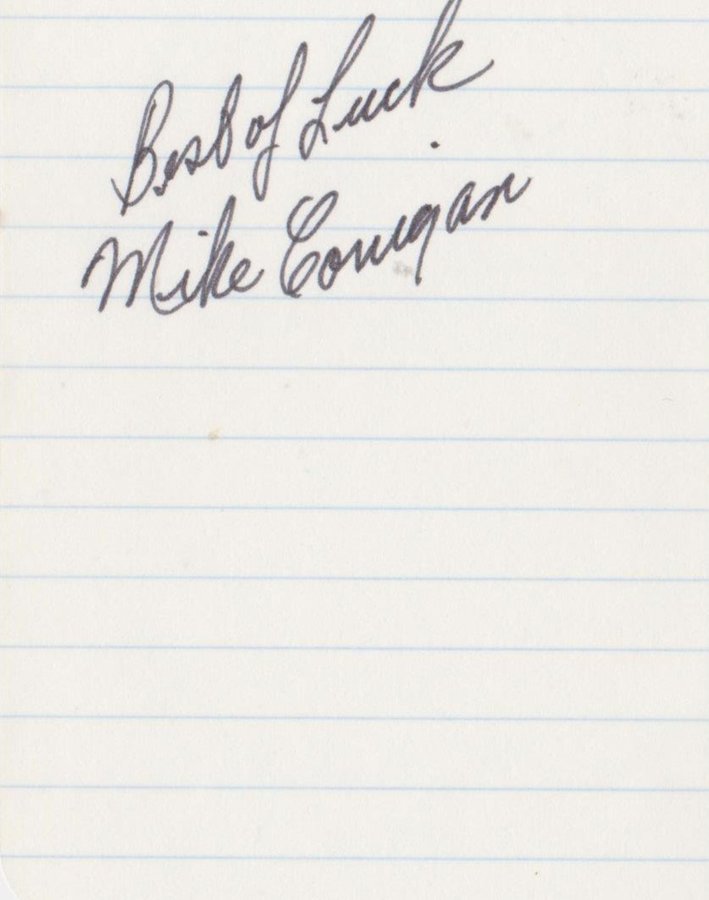 Best of Luck
Mike Corrigan